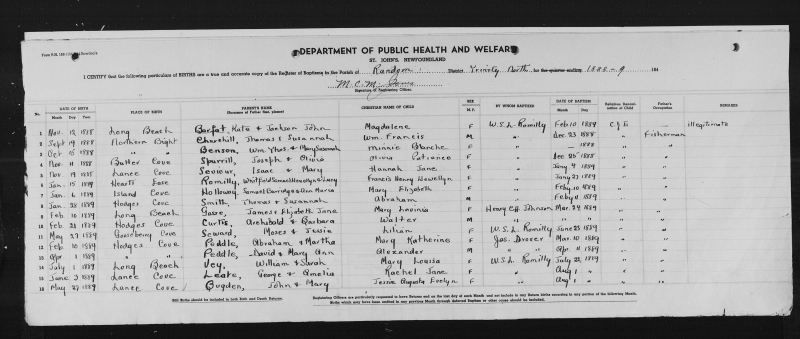 DEPARTMENT OF PUBLIC HEALTH AND WELFARE
ST. JOHN'S, NEWFOUNDLAND
I CERTIFY that the following particulars of BIRTHS are a true and accurate copy of the Register of Baptisms in the Parish of Random District Trinity North for the quarter ending 1888-9 194
M.C.M.
Signature of Registering Officer.
No. DATE OF BIRTH PLACE OF BIRTH PARENTS NAME CHRISTIAN NAME OF CHILD SEX BY WHOM BAPTIZED DATE OF BAPTISM Religious Denomination of Child Father's Occupation REMARKS
M.F.
1 Nov. 12 1888 Long Beach Barfat, Kate & Jackson John Magdalene F W.S.L. Romilly Feb 10 1889 C of E — illegitimate
2 Sept 19 1888 Northern Bight Churchill, Thomas & Susannah Wm. Francis M " Dec 23 1888 " Fisherman
3 Oct 15 1888 " " Benson, Wm. Thos. & Mary Susannah Minnie Blanche F " — 1888 " "
4 Nov 11 1888 Butter Cove Spurrill, Joseph & Olivia Olivia Patience F " Dec 25 1888 " "
5 Nov 19 1888 Lance Cove Seviour, Isaac & Mary Hannah Jane F " Jany 4 1889 " "
6 Jan. 15 1889 Hearts Ease Romilly, Whitfield Samuel Llewellyn & Lucy Francis Henry Llewellyn " Jany 27 1889 "
7 Jan. 6 1889 Island Cove Holloway, Samuel Burridge & Ann Maria Mary Elizabeth F " Feby 10 1889 " "
8 Jan. 28 1889 Hodges Cove Smith, Thomas & Susannah Abraham M " " "
9 Feb 10 1889 Long Beach James & Elizabeth Jane Mary Lavinia F Henry C. H. Johnson Mar. 24 1889 " "
10 Feb 28 1889 Hodges Cove Curtis, Archibald & Barbara Walter M " " " " " "
11 May 27 1889 Gooseberry Cove Seward, Moses & Jessie Lilian F W.S.L. Romilly June 23 1889 " "
12 Feb 10 1889 Hodges Cove Peddle, Abraham & Martha Mary Katherine F Mar. 10 1889 " "
13 Apr 1 1889 " " Peddle, David & Mary Ann Alexander M " Apr 11 1889 " "
14 July 1 1889 Long Beach Vey, William & Sarah Mary Louisa F W.S.L. Romilly July 22 1889 " "
15 June 3 1889 Lance Cove Leake, George & Amelia Rachel Jane F " Aug 1 " " "
16 May 27 1889 Lance Cove Bugden, John & Mary Jessie Augusta Evelyn F " Aug 1 " " "
Still Births should be included in both Birth and Death Returns.
Registering Officers are particularly requested to have Returns end on the last day of each Month and not include in any Return Births occurring to any portion of the following Month.